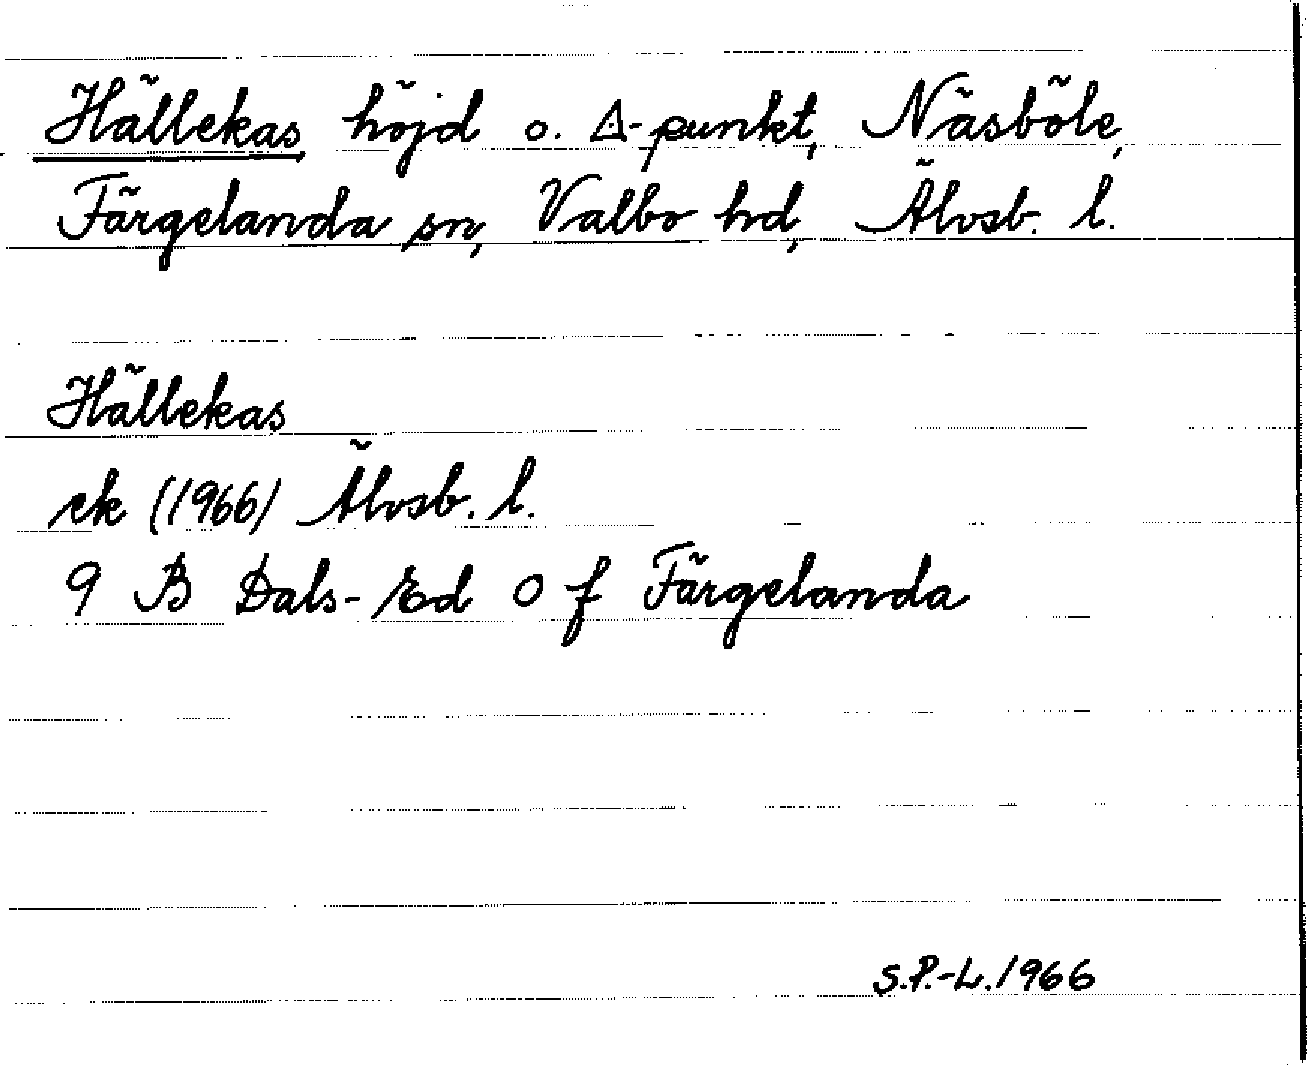 Hällekas höjd o. Δ-punkt, Näsböle,
Färgelanda sn, Valbo hd, Älvsb. l.
Hällekas
ek (1966) Älvsb. l.
9 B Dals-Ed O f Färgelanda
S.P.-L. 1966